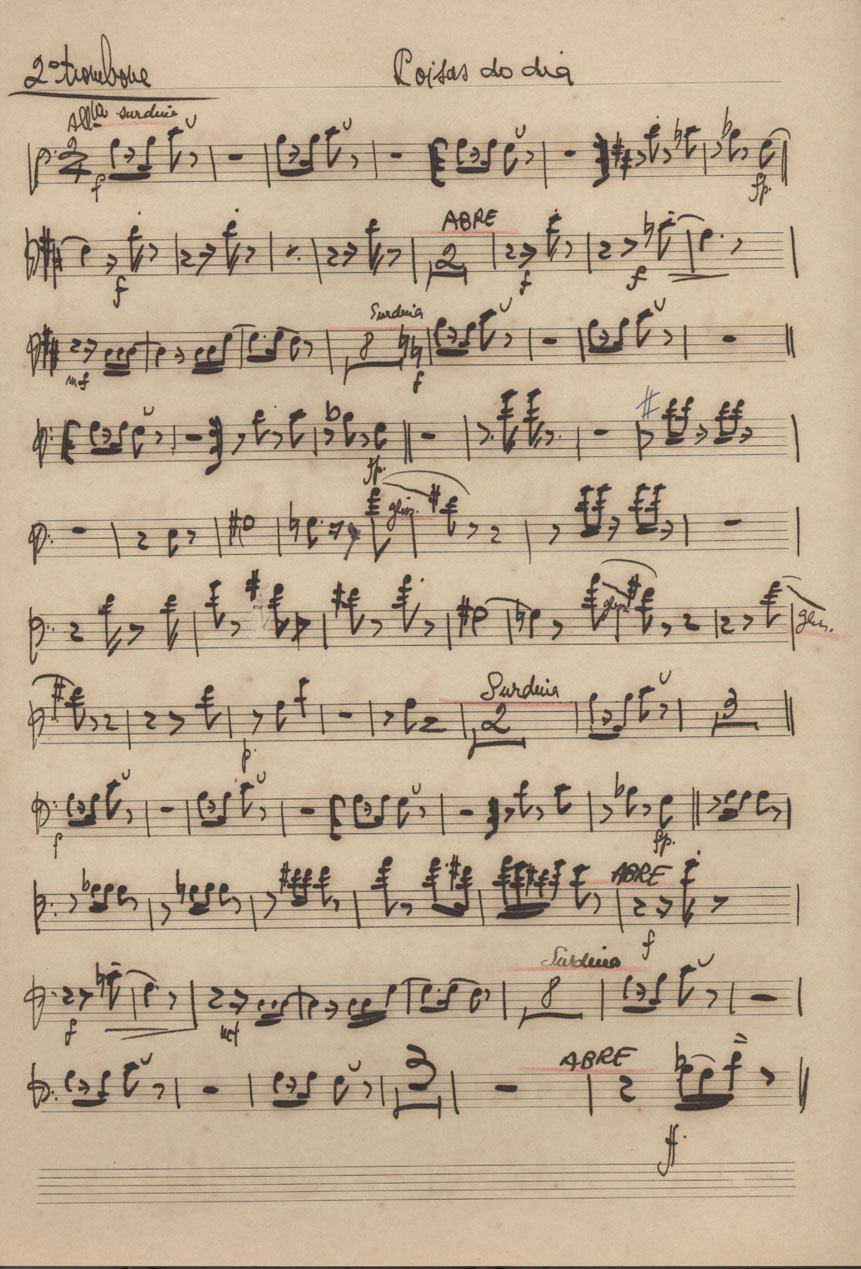 2º trombone Coisas do dia
Allº surdina
2
f fp.
ABRE
2
f f f
Surdina
8
mf f
fp.
gliss.
gliss. gliss.
Surdina
2 3
p.
f fp.
ABRE
f
Surdina
8
f mf
ABRE
3
ff.